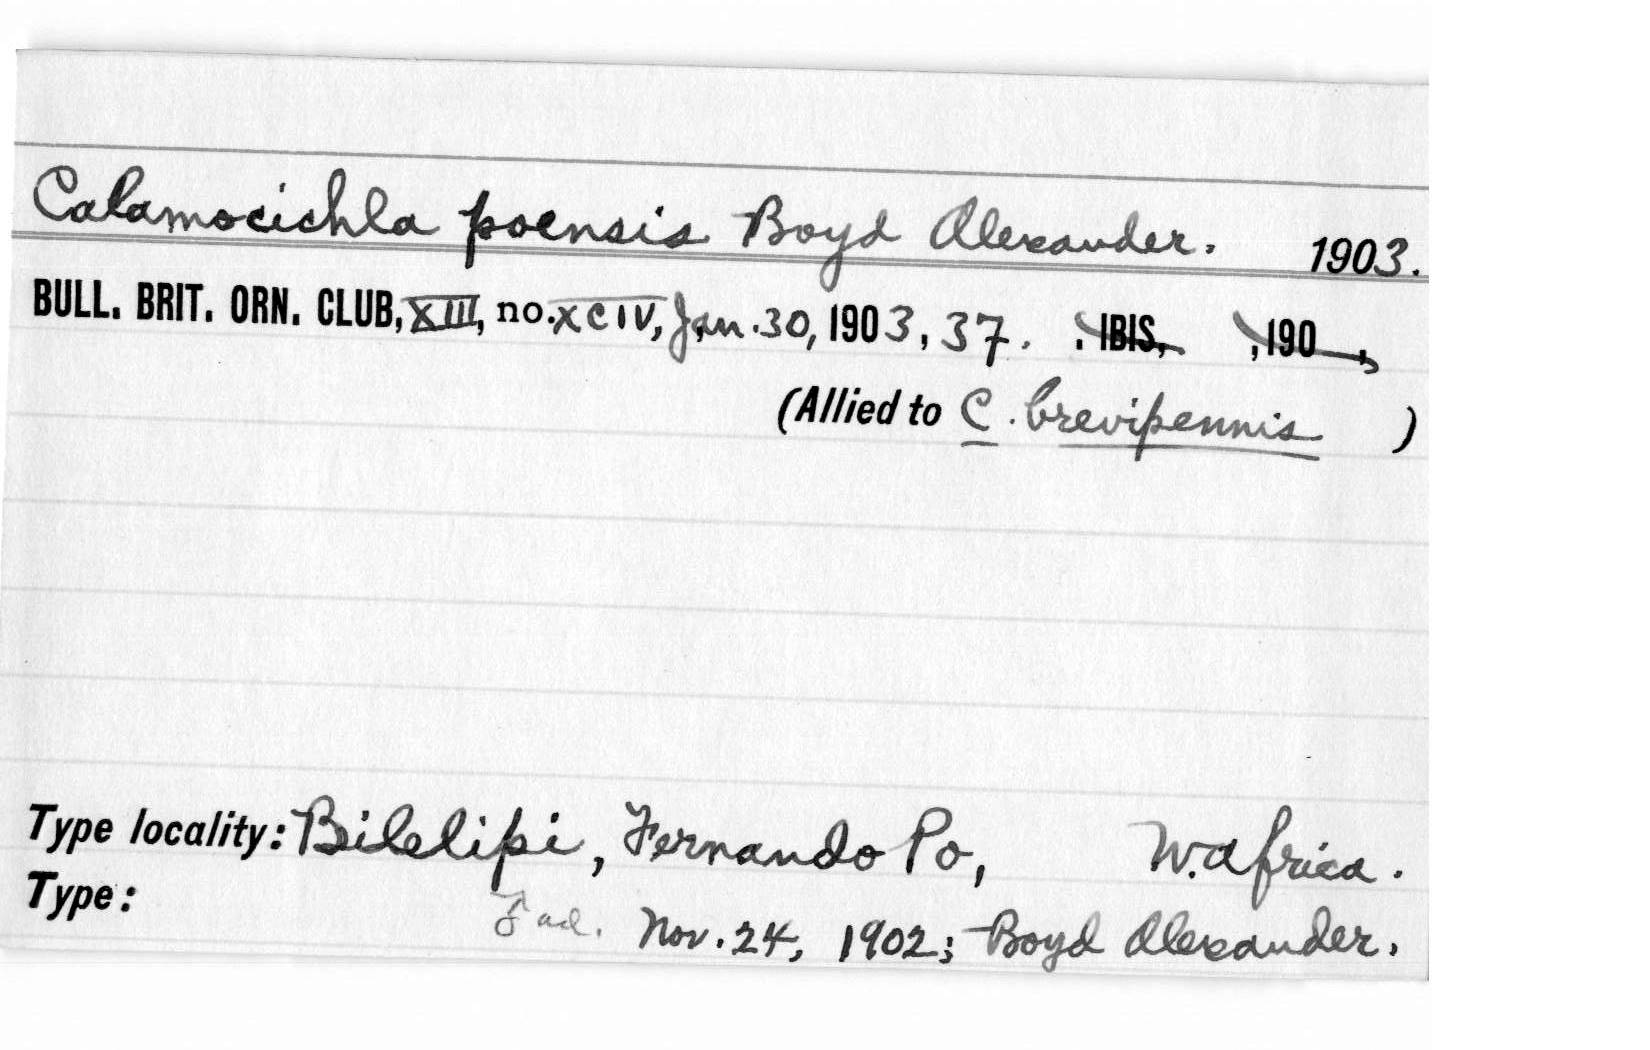 Calamocichla poensis Boyd Alexander. 1903.
BULL. BRIT. ORN. CLUB, XIII, no. XCIV, Jan. 30, 1903, 37. . IBIS, , 190 ,
(Allied to C. brevipennis )
Type locality: Bilelipi, Fernando Po, W. Africa.
Type: ad. Nov. 24, 1902; Boyd Alexander.